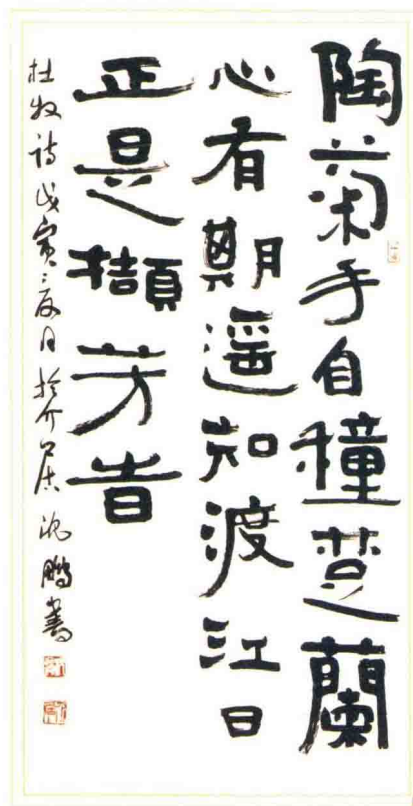 陶菊手自穜楚蘭
心有期遥知渡江日
正是擷芳旹
杜牧诗戊寅夏月於介居沈鹏書